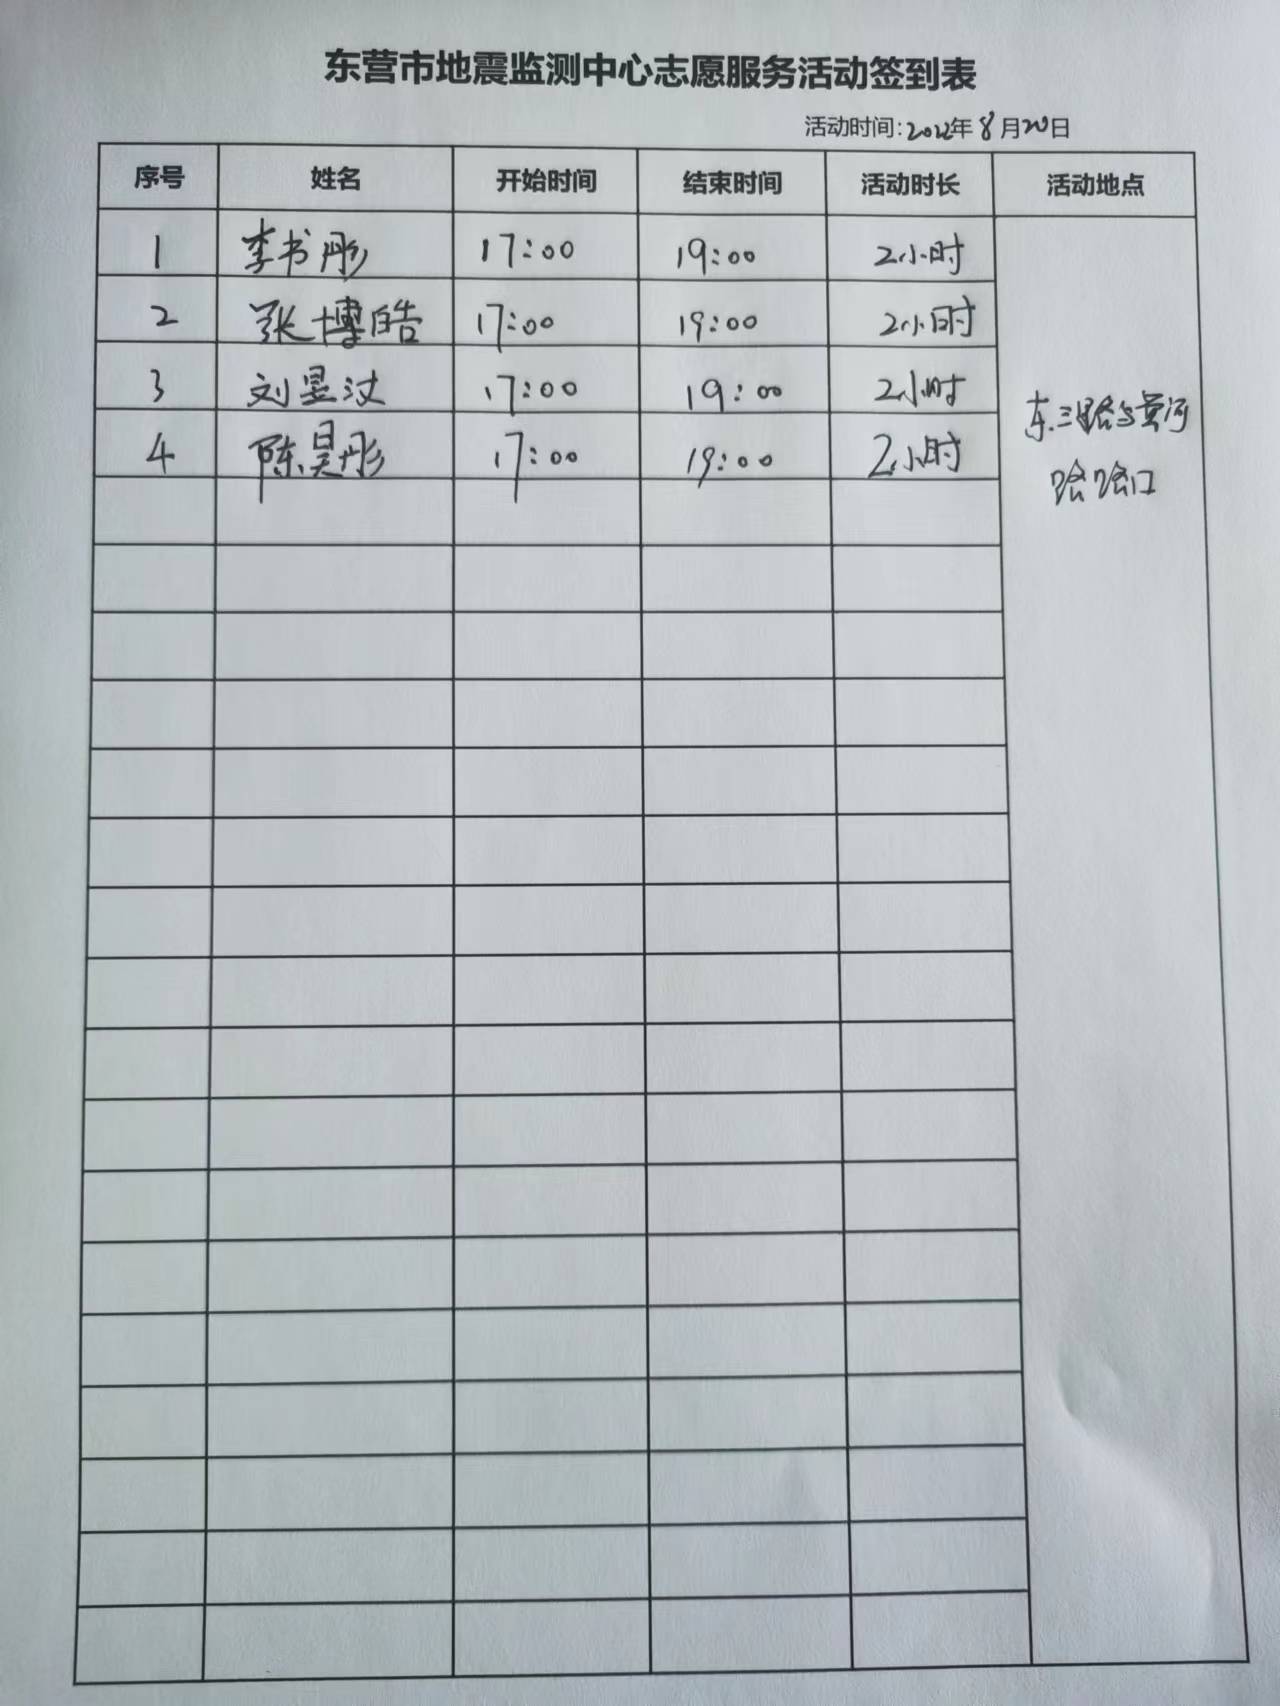 东营市地震监测中心志愿服务活动签到表
活动时间:2022年8月20日
序号 姓名 开始时间 结束时间 活动时长 活动地点
1 李书彤 17:00 19:00 2小时
2 张博皓 17:00 19:00 2小时
3 刘昱汶 17:00 19:00 2小时
4 陈昊彤 17:00 19:00 2小时
东三路与黄河
路路口